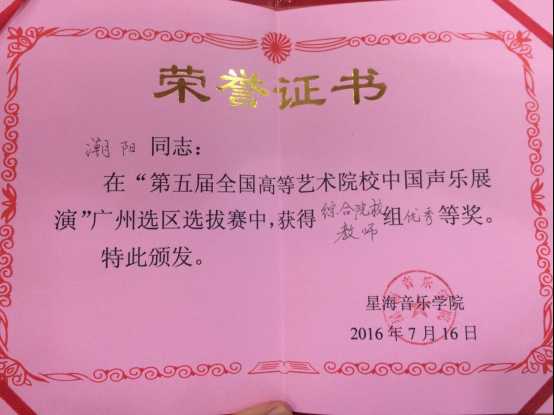 荣誉证书
潮阳 同志：
在“第五届全国高等艺术院校中国声乐展
演”广州选区选拔赛中，获得综合院校教师组优秀等奖。
特此颁发。
星海音乐学院
2016年7月16日